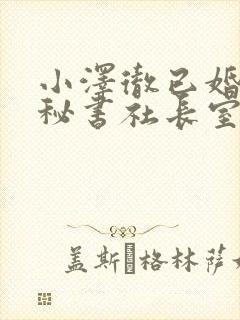 小澤徹已婚
秘書社長室
盖斯·格林萨